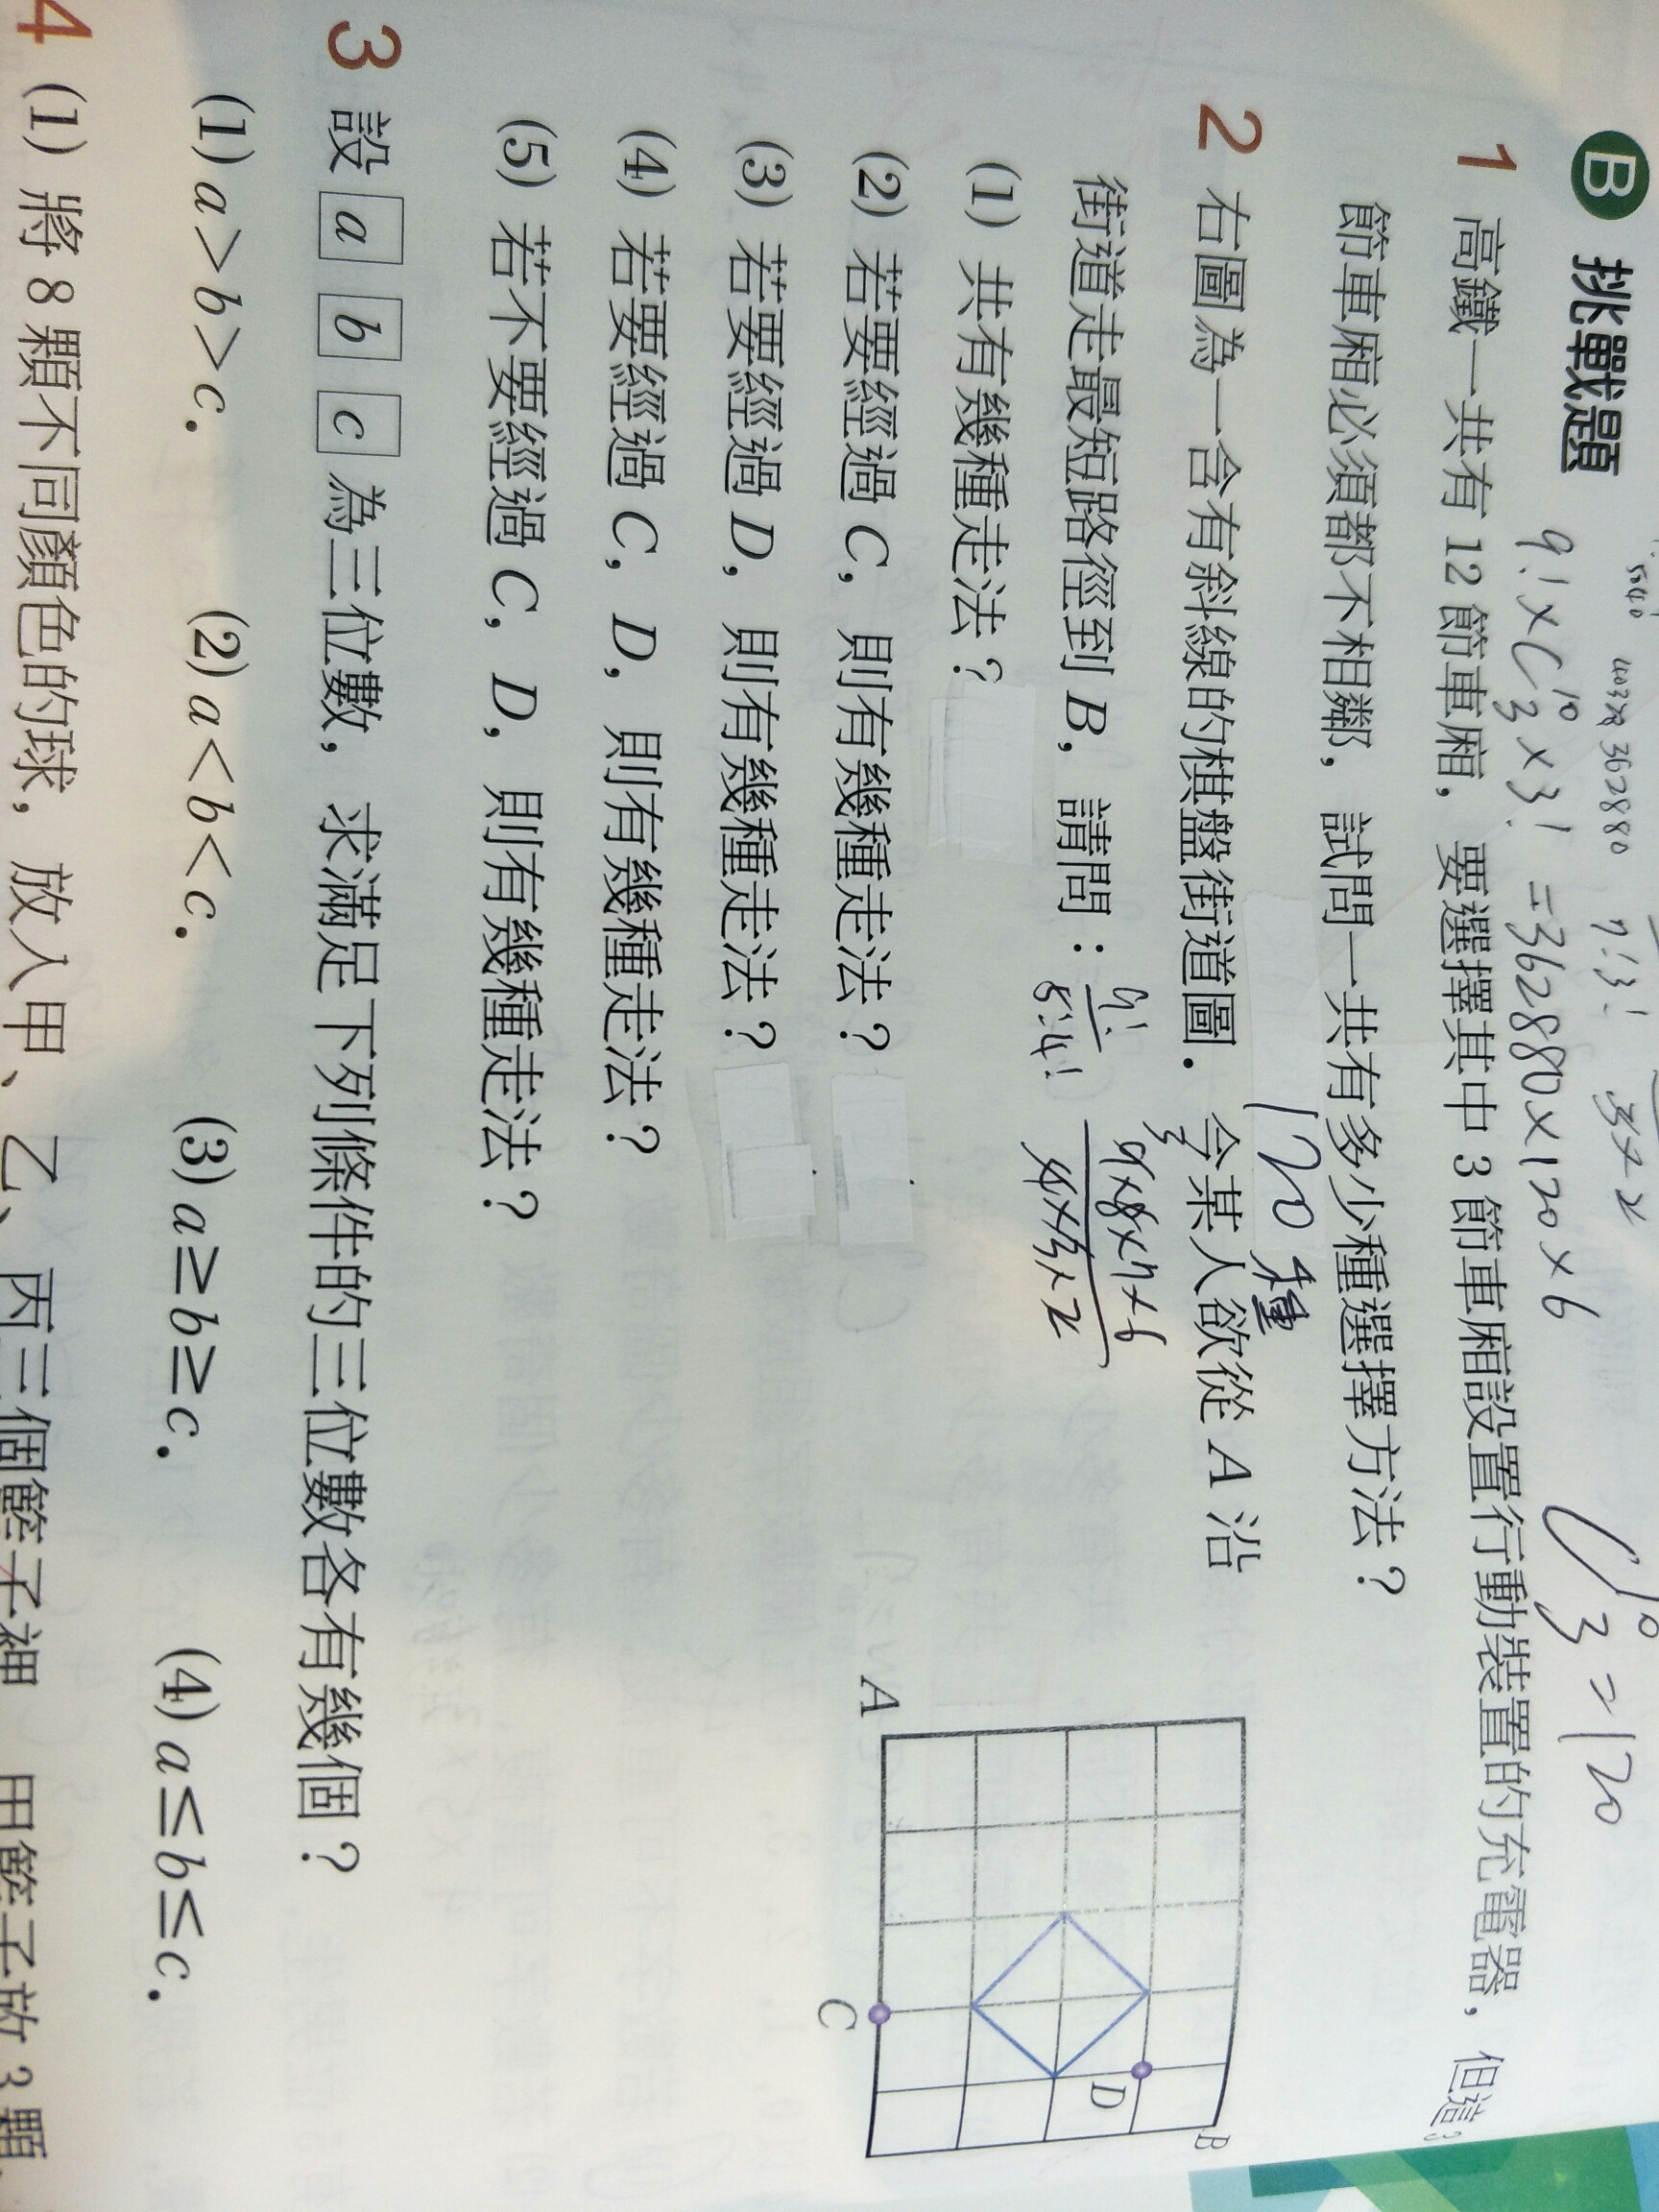 B 挑戰題
5040 40320 362880 7!3! 3×2
9!×C¹⁰₃×3! =362880×120×6 C¹⁰₃=120
1 高鐵一共有 12 節車廂，要選擇其中 3 節車廂設置行動裝置的充電器，但這 3
節車廂必須都不相鄰，試問一共有多少種選擇方法？
120 種
2 右圖為一含有斜線的棋盤街道圖．今某人欲從 A 沿
街道走最短路徑到 B，請問：
9!/5!4! 9×8×7×6/4×3×2
(1) 共有幾種走法？
(2) 若要經過 C，則有幾種走法？
(3) 若要經過 D，則有幾種走法？
(4) 若要經過 C，D，則有幾種走法？
(5) 若不要經過 C，D，則有幾種走法？
A
B
C
D
3 設 a b c 為三位數，求滿足下列條件的三位數各有幾個？
(1) a>b>c． (2) a<b<c． (3) a≥b≥c． (4) a≤b≤c．
4 (1) 將 8 顆不同顏色的球，放入甲、乙、丙三個籃子裡 甲籃子放 3 顆，